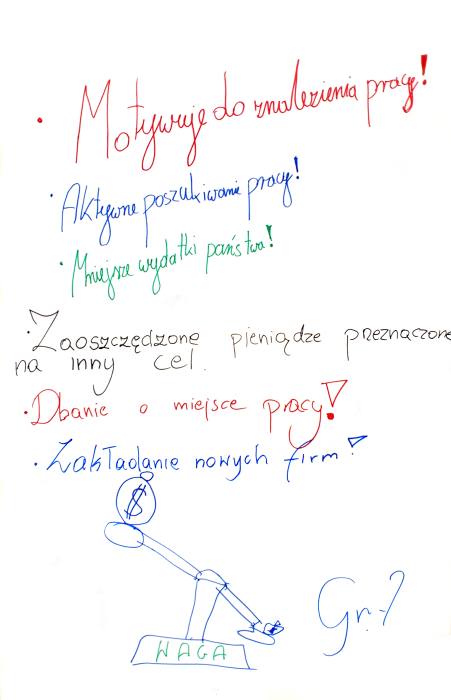 • Motywuje do znalezienia pracy!
• Aktywne poszukiwanie pracy!
• Mniejsze wydatki państwa!
• Zaoszczędzone pieniądze przeznaczone
na inny cel.
• Dbanie o miejsce pracy!
• Zakładanie nowych firm!
$
WAGA